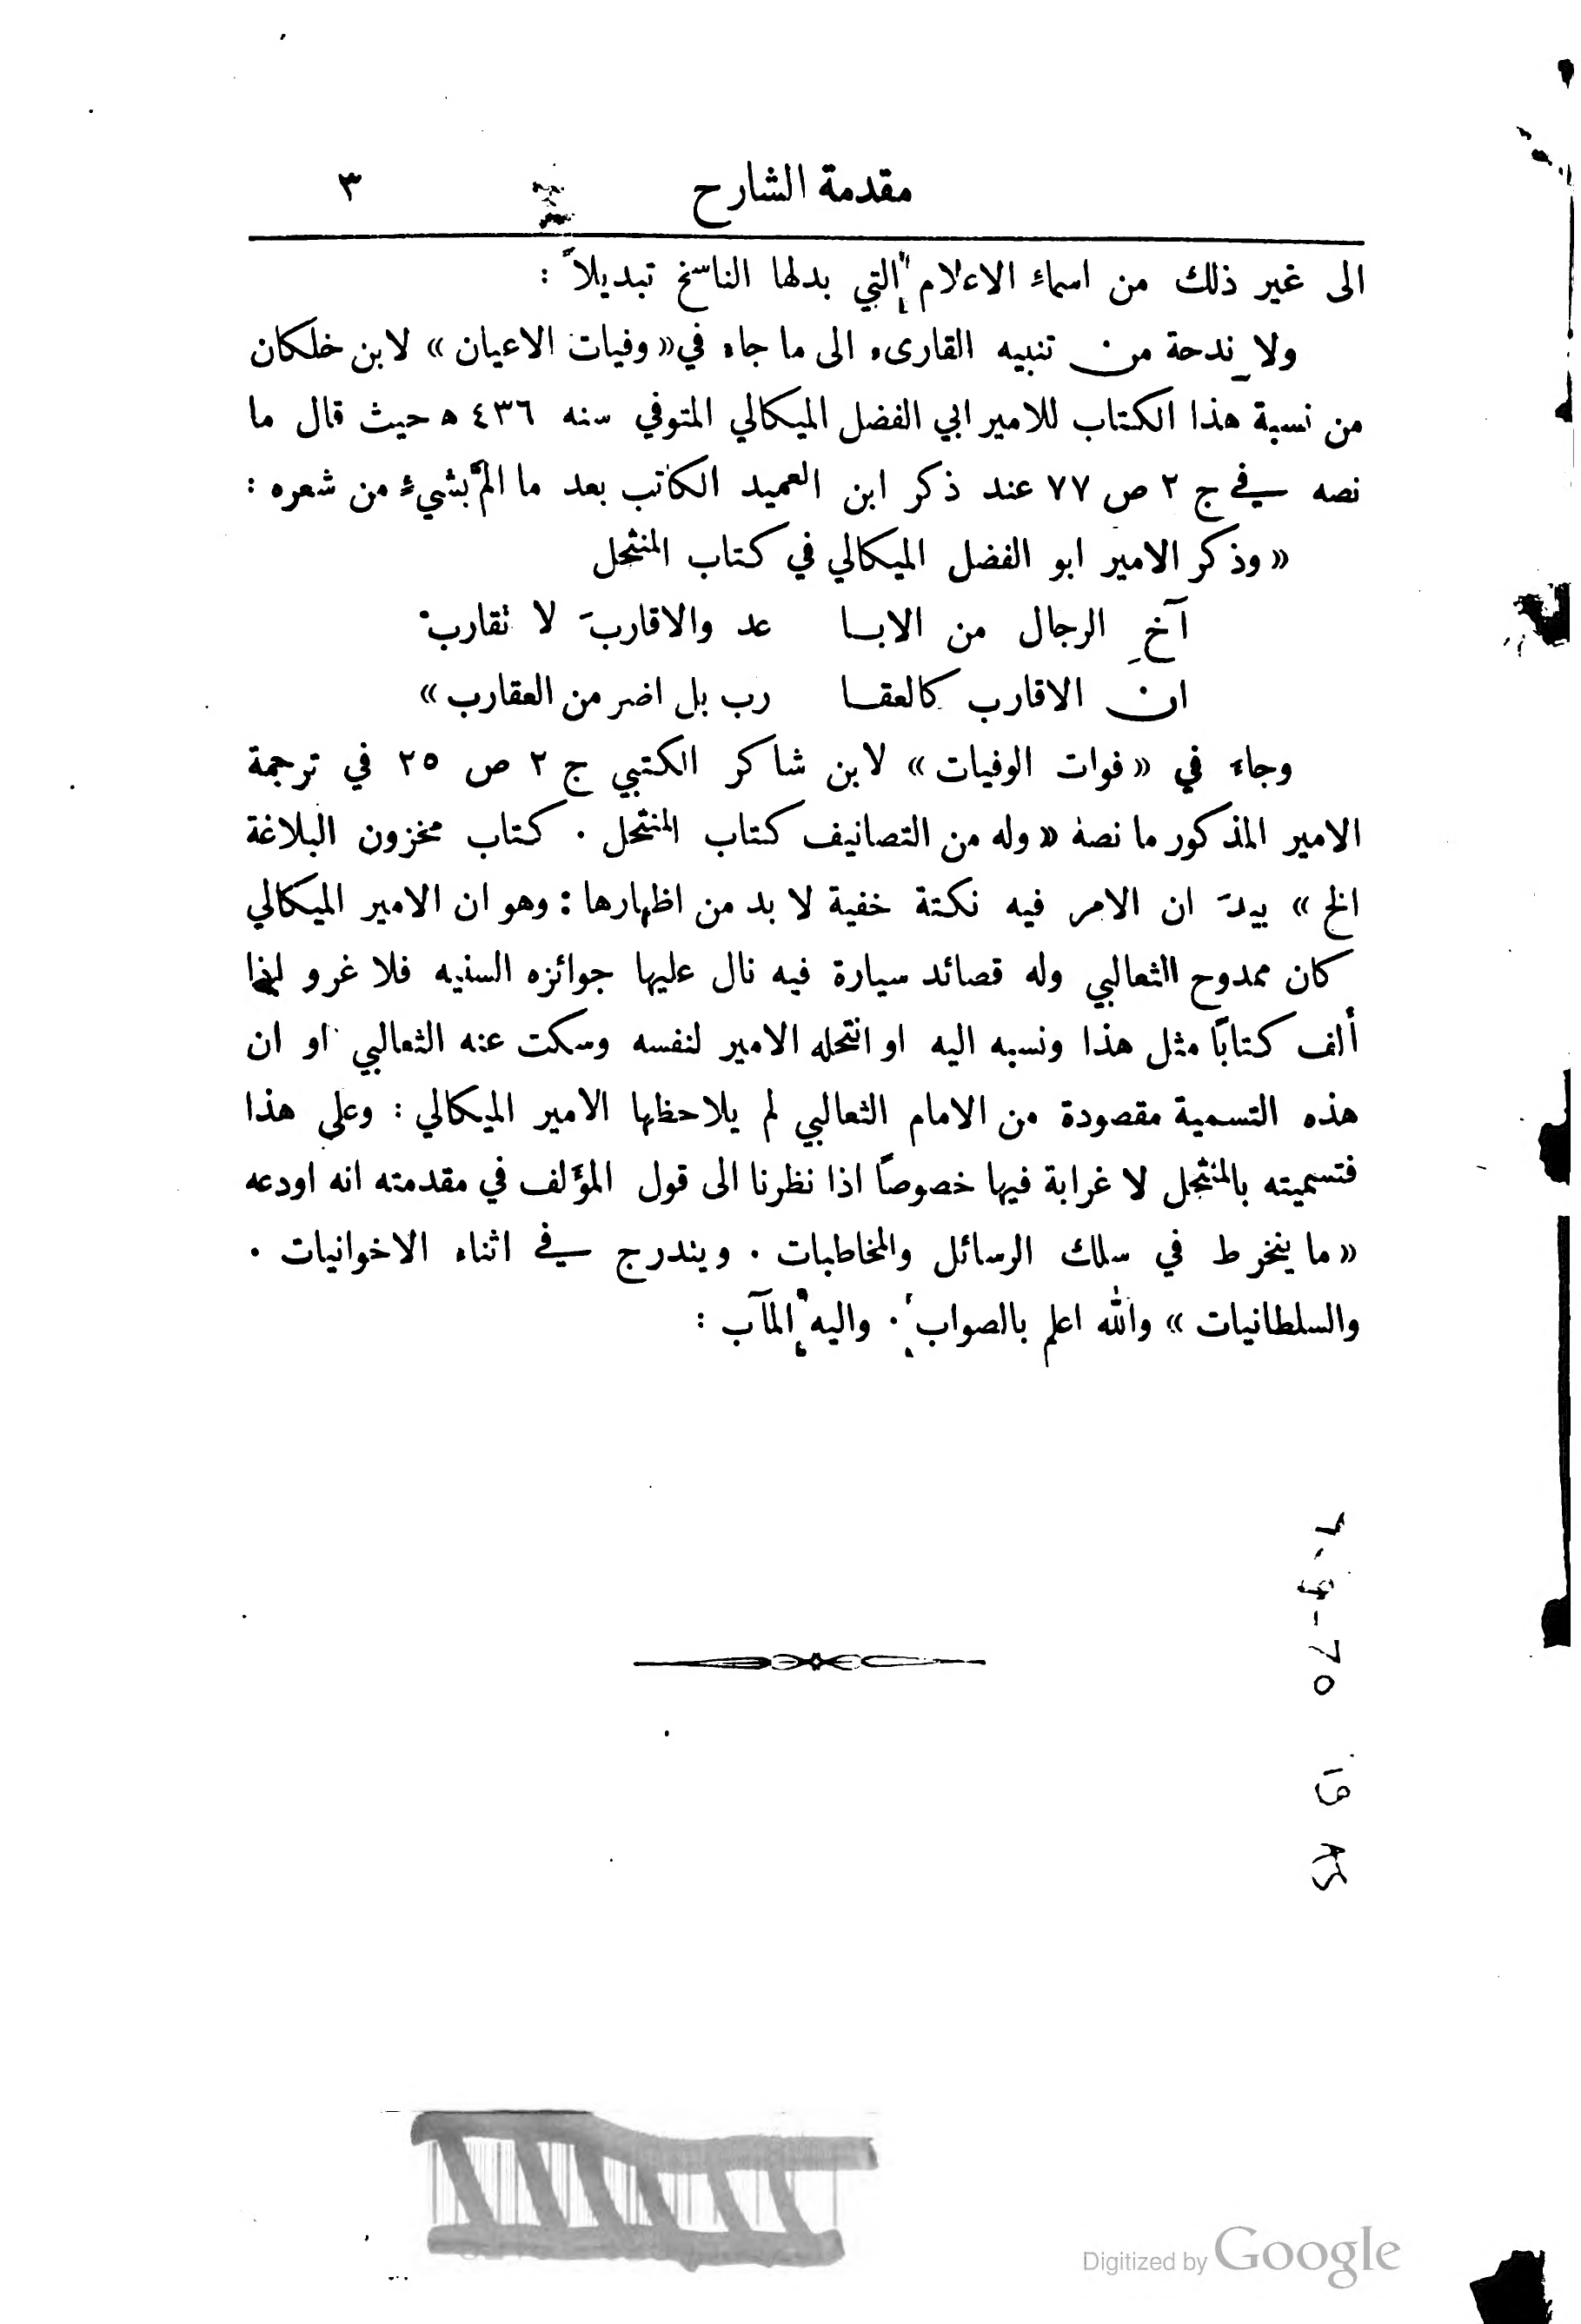 مقدمة الشارح ٣
الى غير ذلك من اسماء الاعلام التي بدلها الناسخ تبديلاً :
ولا ندحة من تنبيه القارىء الى ما جاء في « وفيات الاعيان » لابن خلكان
من نسبة هذا الكتاب للامير ابي الفضل الميكالي المتوفي سنه ٤٣٦ ه حيث قال ما
نصه في ج ٢ ص ٧٧ عند ذكر ابن العميد الكاتب بعد ما المَّ بشيءٍ من شعره :
« وذكر الامير ابو الفضل الميكالي في كتاب المنتحل
آخِ الرجال من الابا عد والاقاربَ لا تقاربْ
ان الاقارب كالعقا رب بل اضر من العقارب »
وجاء في « فوات الوفيات » لابن شاكر الكتبي ج ٢ ص ٢٥ في ترجمة
الامير المذكور ما نصه « وله من التصانيف كتاب المنتحل . كتاب مخزون البلاغة
الخ » بيدَ ان الامر فيه نكتة خفية لا بد من اظهارها : وهو ان الامير الميكالي
كان ممدوح الثعالبي وله قصائد سيارة فيه نال عليها جوائزه السنيه فلا غرو اذا
ألف كتابًا مثل هذا ونسبه اليه او انتحله الامير لنفسه وسكت عنه الثعالبي او ان
هذه التسمية مقصودة من الامام الثعالبي لم يلاحظها الامير الميكالي : وعلى هذا
فتسميته بالمنتحل لا غرابة فيها خصوصًا اذا نظرنا الى قول المؤلف في مقدمته انه اودعه
« ما ينخرط في سلك الرسائل والمخاطبات . ويندرج في اثناء الاخوانيات .
والسلطانيات » والله اعلم بالصواب . واليه المآب :
Digitized by Google